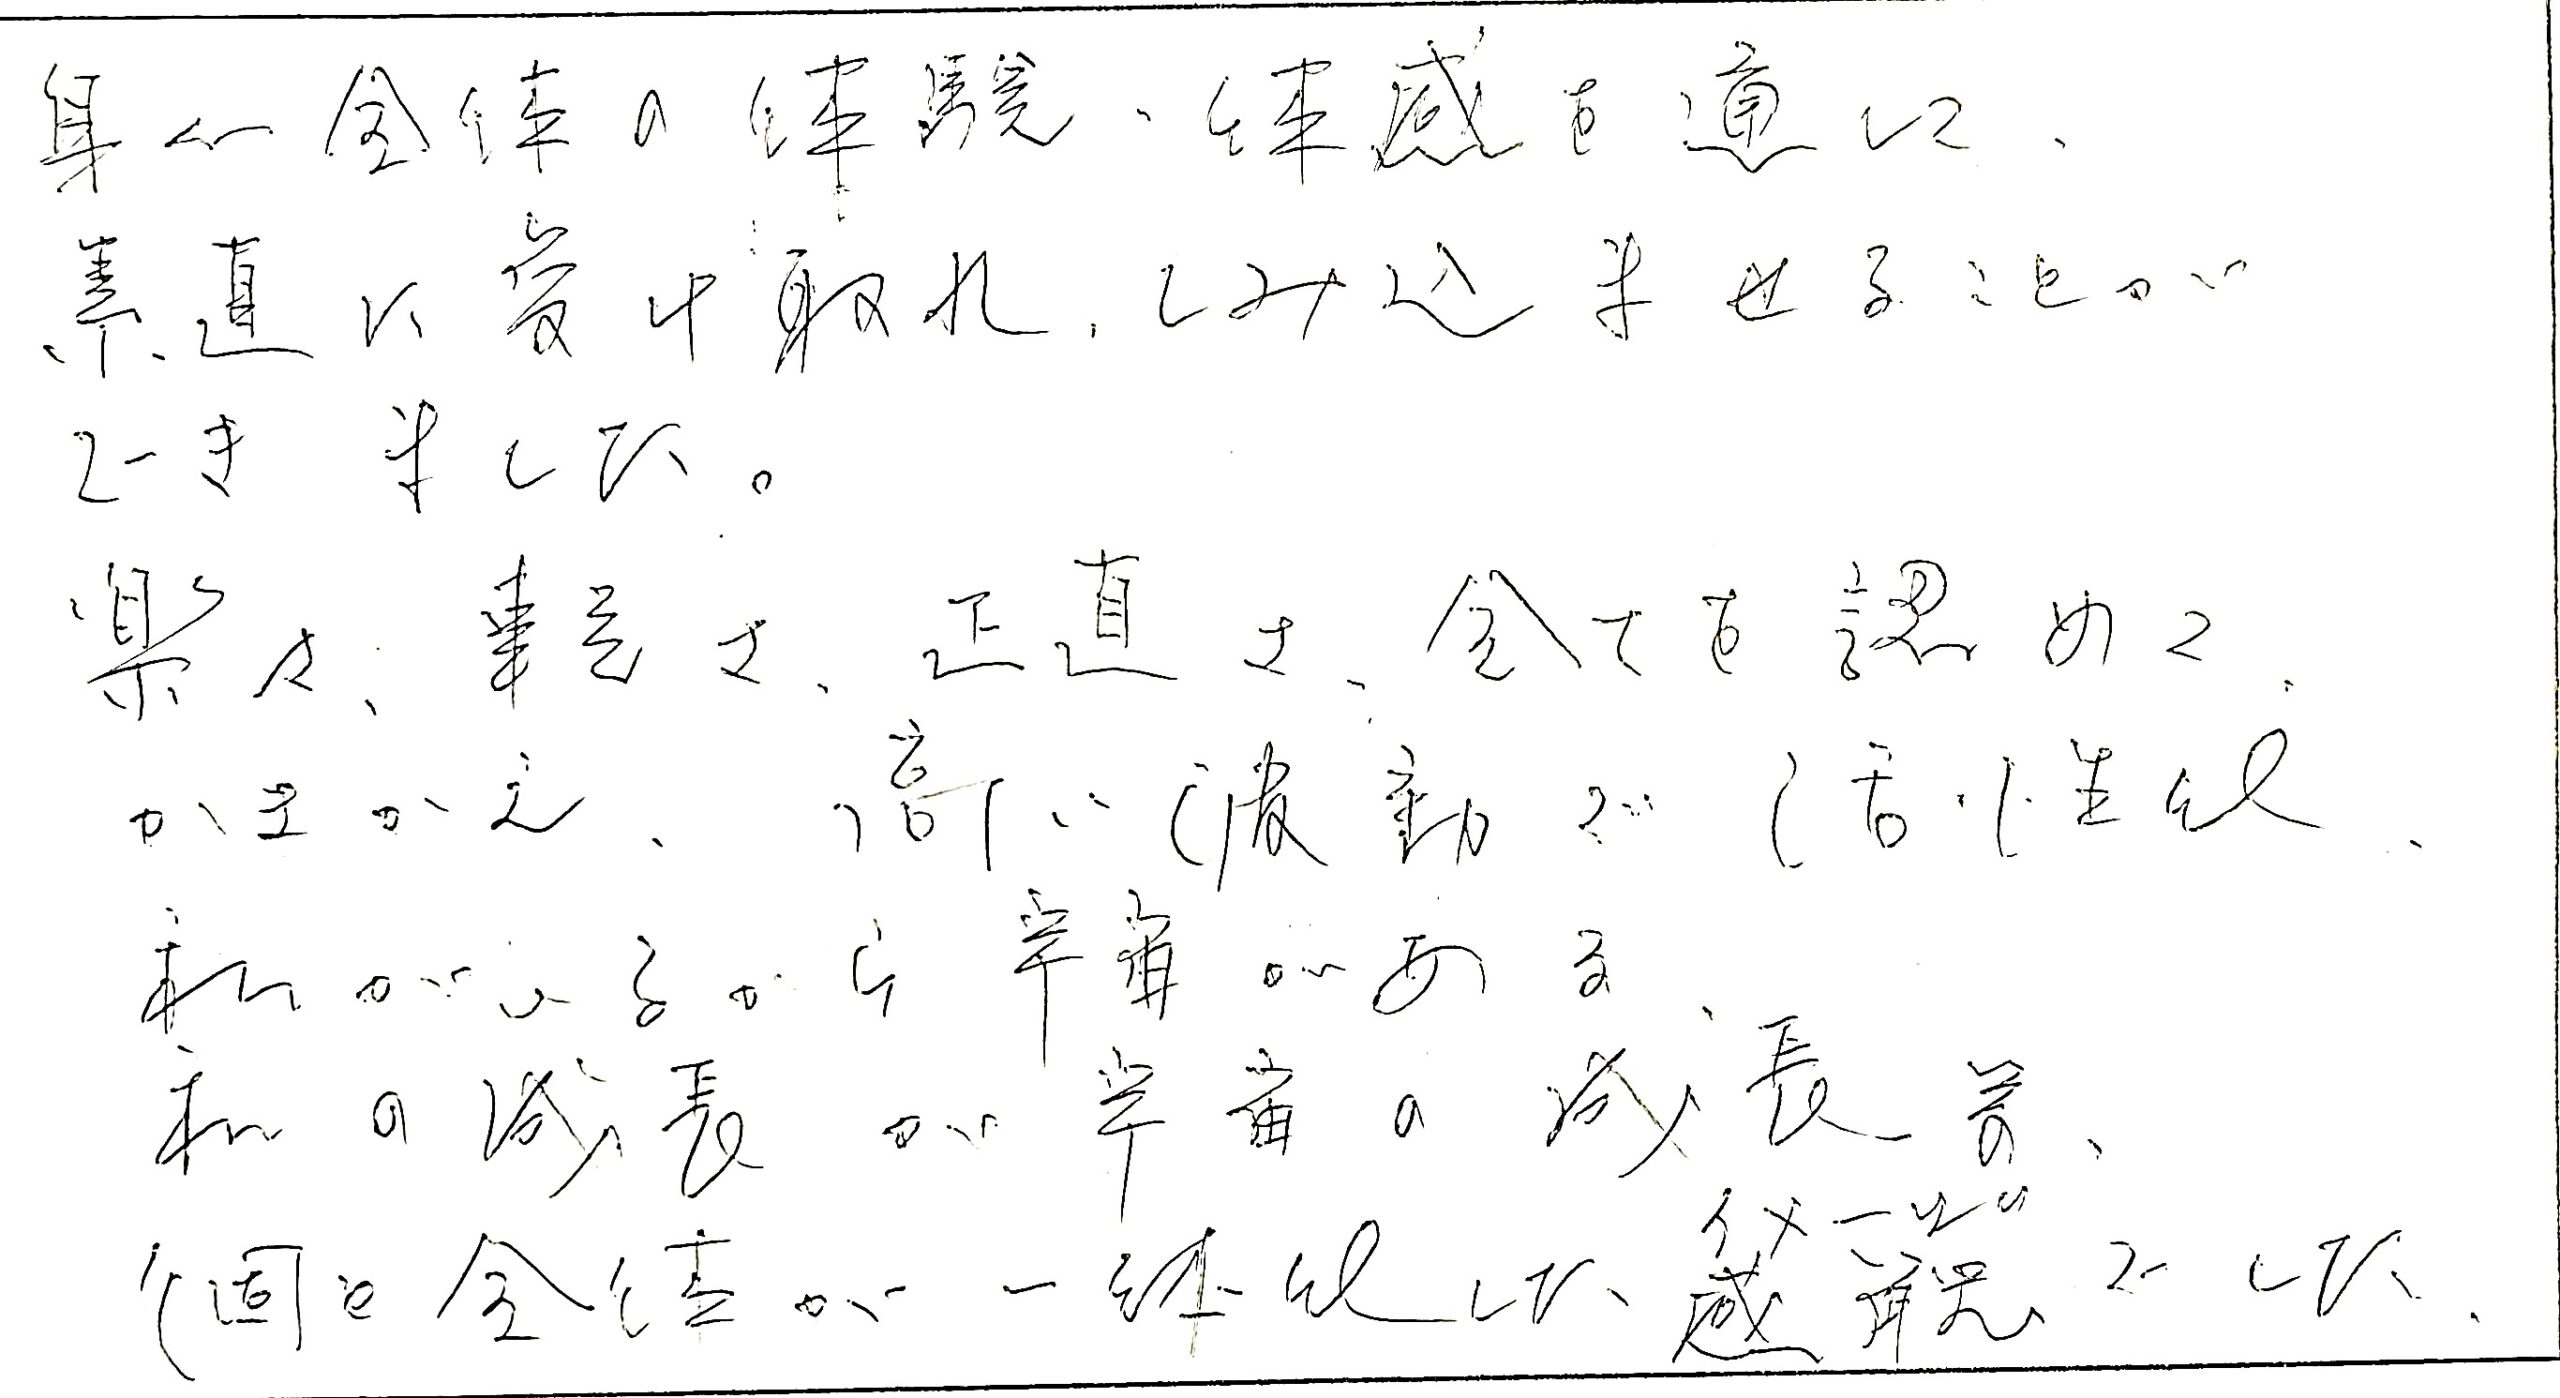 身心全体の体験、体感を通して、
素直に受け取れ、しみ込ませることが
できました。
楽々、幸号さ、正直さ、全てを認めて、
かまかえ、高い波動で活性化、
私がいるから宇宙がある、
私の成長が宇宙の成長等、
イメージ
個と全体が一体化した感覚でした、